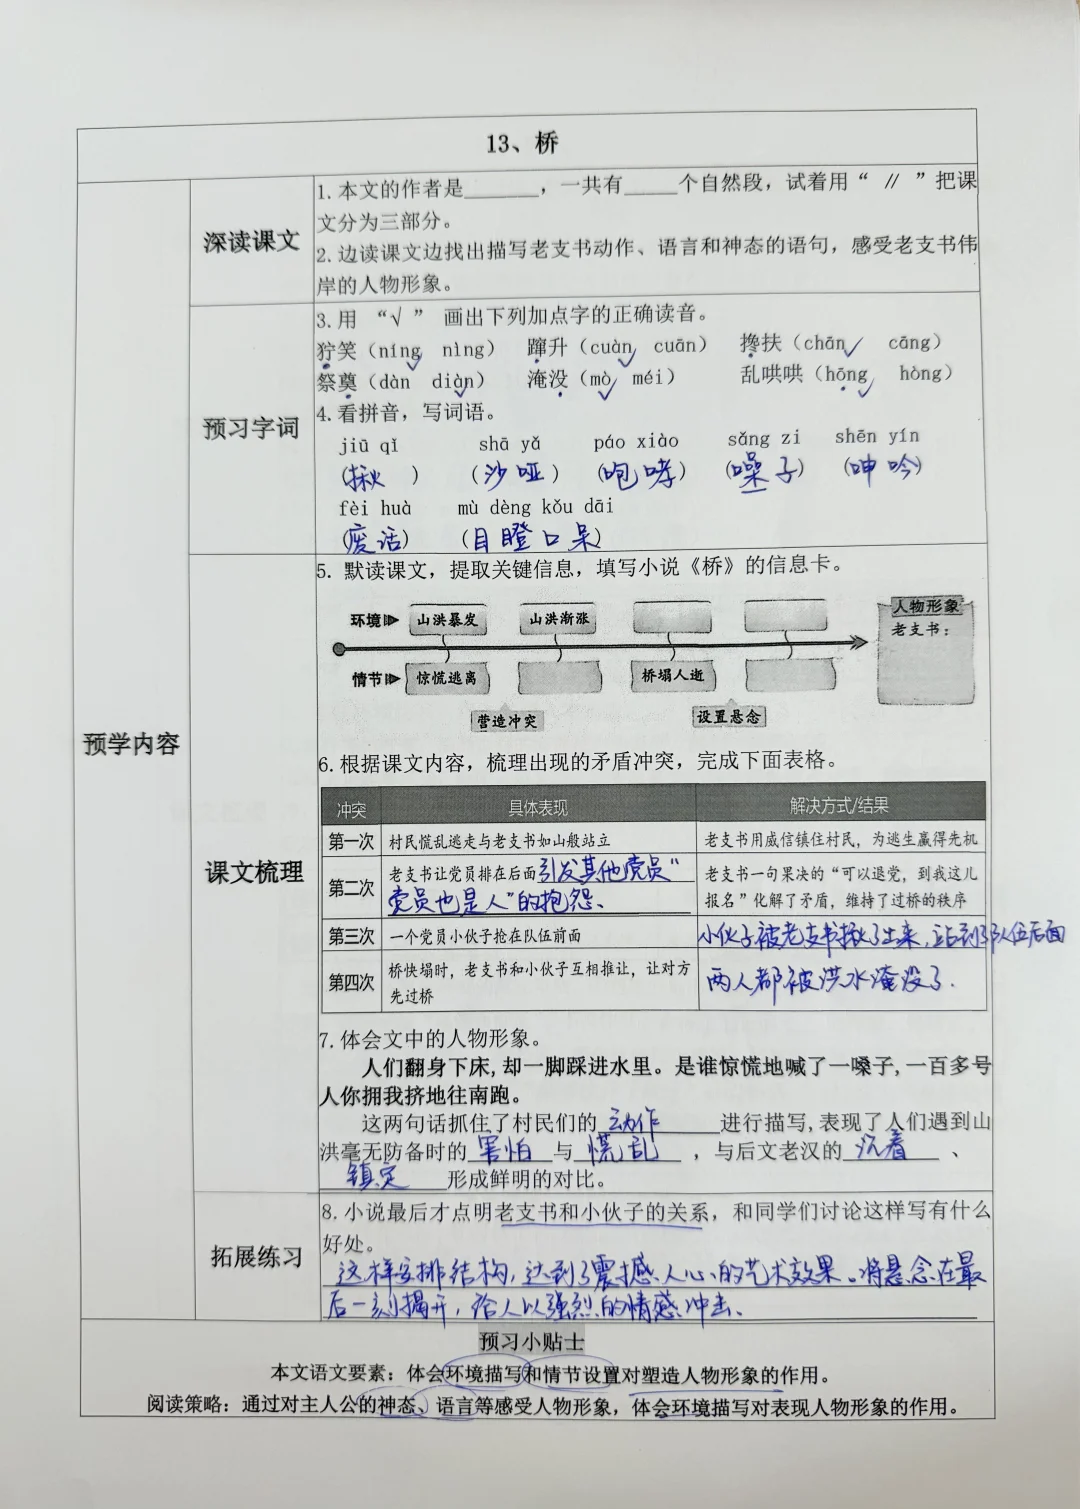 13、桥
预学内容
深读课文
1.本文的作者是______，一共有_____个自然段，试着用“ ∥ ”把课
文分为三部分。
2.边读课文边找出描写老支书动作、语言和神态的语句，感受老支书伟
岸的人物形象。
预习字词
3.用 “√ ” 画出下列加点字的正确读音。
狞笑（níng√ nìng） 蹿升（cuàn√ cuān） 搀扶（chān√ cāng）
祭奠（dàn diàn√） 淹没（mò√ méi） 乱哄哄（hōng√ hòng）
4.看拼音，写词语。
jiū qǐ shā yǎ páo xiào sǎng zi shēn yín
(揪 ) (沙哑) (咆哮) (嗓子) (呻吟)
fèi huà mù dèng kǒu dāi
(废话) (目瞪口呆)
课文梳理
5. 默读课文，提取关键信息，填写小说《桥》的信息卡。
环境 山洪暴发 山洪渐涨
人物形象
老支书：
情节 惊慌逃离 桥塌人逝
营造冲突 设置悬念
6.根据课文内容，梳理出现的矛盾冲突，完成下面表格。
冲突 具体表现 解决方式/结果
第一次 村民慌乱逃走与老支书如山般站立 老支书用威信镇住村民，为逃生赢得先机
第二次 老支书让党员排在后面引发其他党员“
党员也是人”的抱怨、
老支书一句果决的“可以退党，到我这儿
报名”化解了矛盾，维持了过桥的秩序
第三次 一个党员小伙子抢在队伍前面 小伙子被老支书揪了出来，站到了队伍后面
第四次 桥快塌时，老支书和小伙子互相推让，让对方
先过桥
两人都被洪水淹没了.
7.体会文中的人物形象。
人们翻身下床,却一脚踩进水里。是谁惊慌地喊了一嗓子,一百多号
人你拥我挤地往南跑。
这两句话抓住了村民们的 动作 进行描写,表现了人们遇到山
洪毫无防备时的 害怕 与 慌乱 ，与后文老汉的 沉着 、
镇定 形成鲜明的对比。
拓展练习
8.小说最后才点明老支书和小伙子的关系，和同学们讨论这样写有什么
好处。
这样安排结构，达到了震撼人心的艺术效果。将悬念在最
后一刻揭开，给人以强烈的情感冲击、
预习小贴士
本文语文要素：体会环境描写和情节设置对塑造人物形象的作用。
阅读策略：通过对主人公的神态、语言等感受人物形象，体会环境描写对表现人物形象的作用。